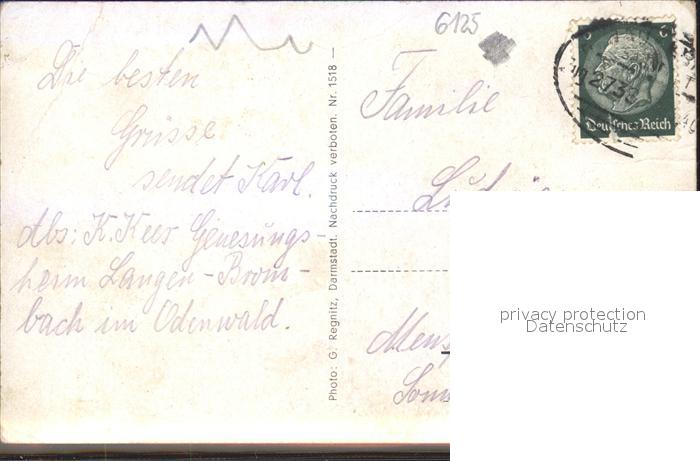 Die besten
Grüsse
sendet Karl.
Abs: K. Kees Genesungs-
heim Langen-Brom-
bach im Odenwald.
Photo: G. Regnitz, Darmstadt. Nachdruck verboten. Nr. 1518 —
6125
Familie
6
Deutsches Reich
privacy protection
Datenschutz